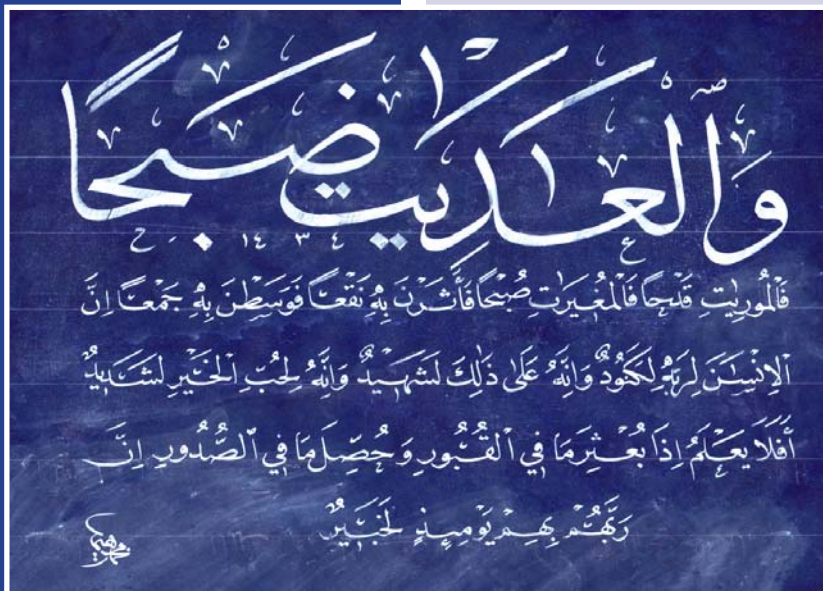 وَالْعَادِيَاتِ ضَبْحًا
١٤٣٤
فَالْمُورِيَاتِ قَدْحًا فَالْمُغِيرَاتِ صُبْحًا فَأَثَرْنَ بِهِ نَقْعًا فَوَسَطْنَ بِهِ جَمْعًا اِنَّ
الْاِنْسَانَ لِرَبِّهِ لَكَنُودٌ وَاِنَّهُ عَلَى ذَلِكَ لَشَهِيدٌ وَاِنَّهُ لِحُبِّ الْخَيْرِ لَشَدِيدٌ
أَفَلَا يَعْلَمُ اِذَا بُعْثِرَ مَا فِي الْقُبُورِ وَحُصِّلَ مَا فِي الصُّدُورِ اِنَّ
رَبَّهُمْ بِهِمْ يَوْمَئِذٍ لَخَبِيرٌ